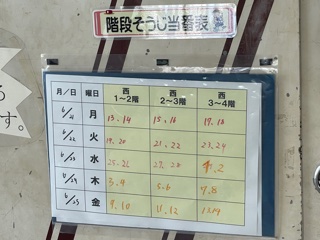 階段そうじ当番表
月/日 曜日 西 1~2階 西 2~3階 西 3~4階
6/21 月 13.14 15.16 17.18
6/22 火 19.20 21.22 23.24
6/23 水 25.26 27.28 1.2
6/24 木 3.4 5.6 7.8
6/25 金 9.10 11.12 13.14
す。